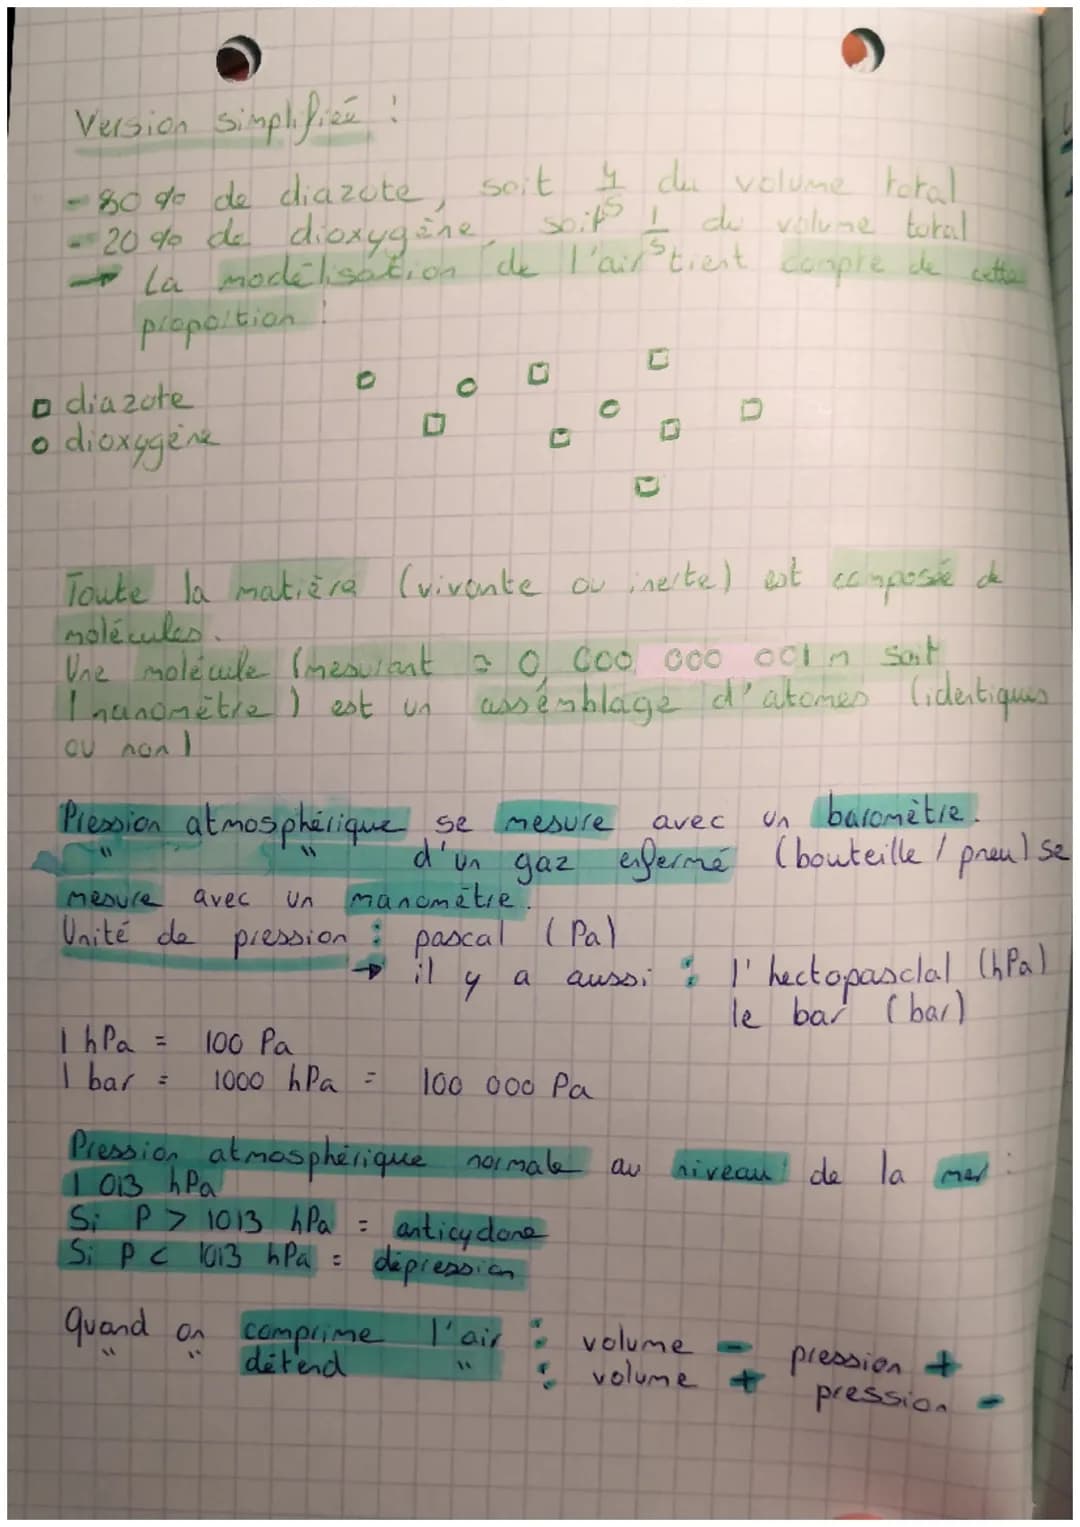 Version simplifiée :
- 80 % de diazote, soit 4/5 du volume total
- 20 % de dioxygène, soit 1/5 du volume total
→ La modélisation de l'air tient compte de cette
proportion !
□ diazote
○ dioxygène
Toute la matière (vivante ou inerte) est composée de
molécules.
Une molécule (mesurant ≈ 0, 000 000 001 m soit
1 nanomètre) est un assemblage d'atomes (identiques
ou non)
Pression atmosphérique se mesure avec un baromètre.
" " d'un gaz enfermé (bouteille / pneu) se
mesure avec un manomètre.
Unité de pression : pascal (Pa)
→ il y a aussi : l'hectopasclal (hPa)
le bar (bar)
1 hPa = 100 Pa
1 bar = 1000 hPa = 100 000 Pa
Pression atmosphérique normale au niveau de la mer :
1 013 hPa
Si P > 1013 hPa = anticyclone
Si P < 1013 hPa = dépression
Quand on comprime l'air : volume - pression +
" " détend " : volume + pression -